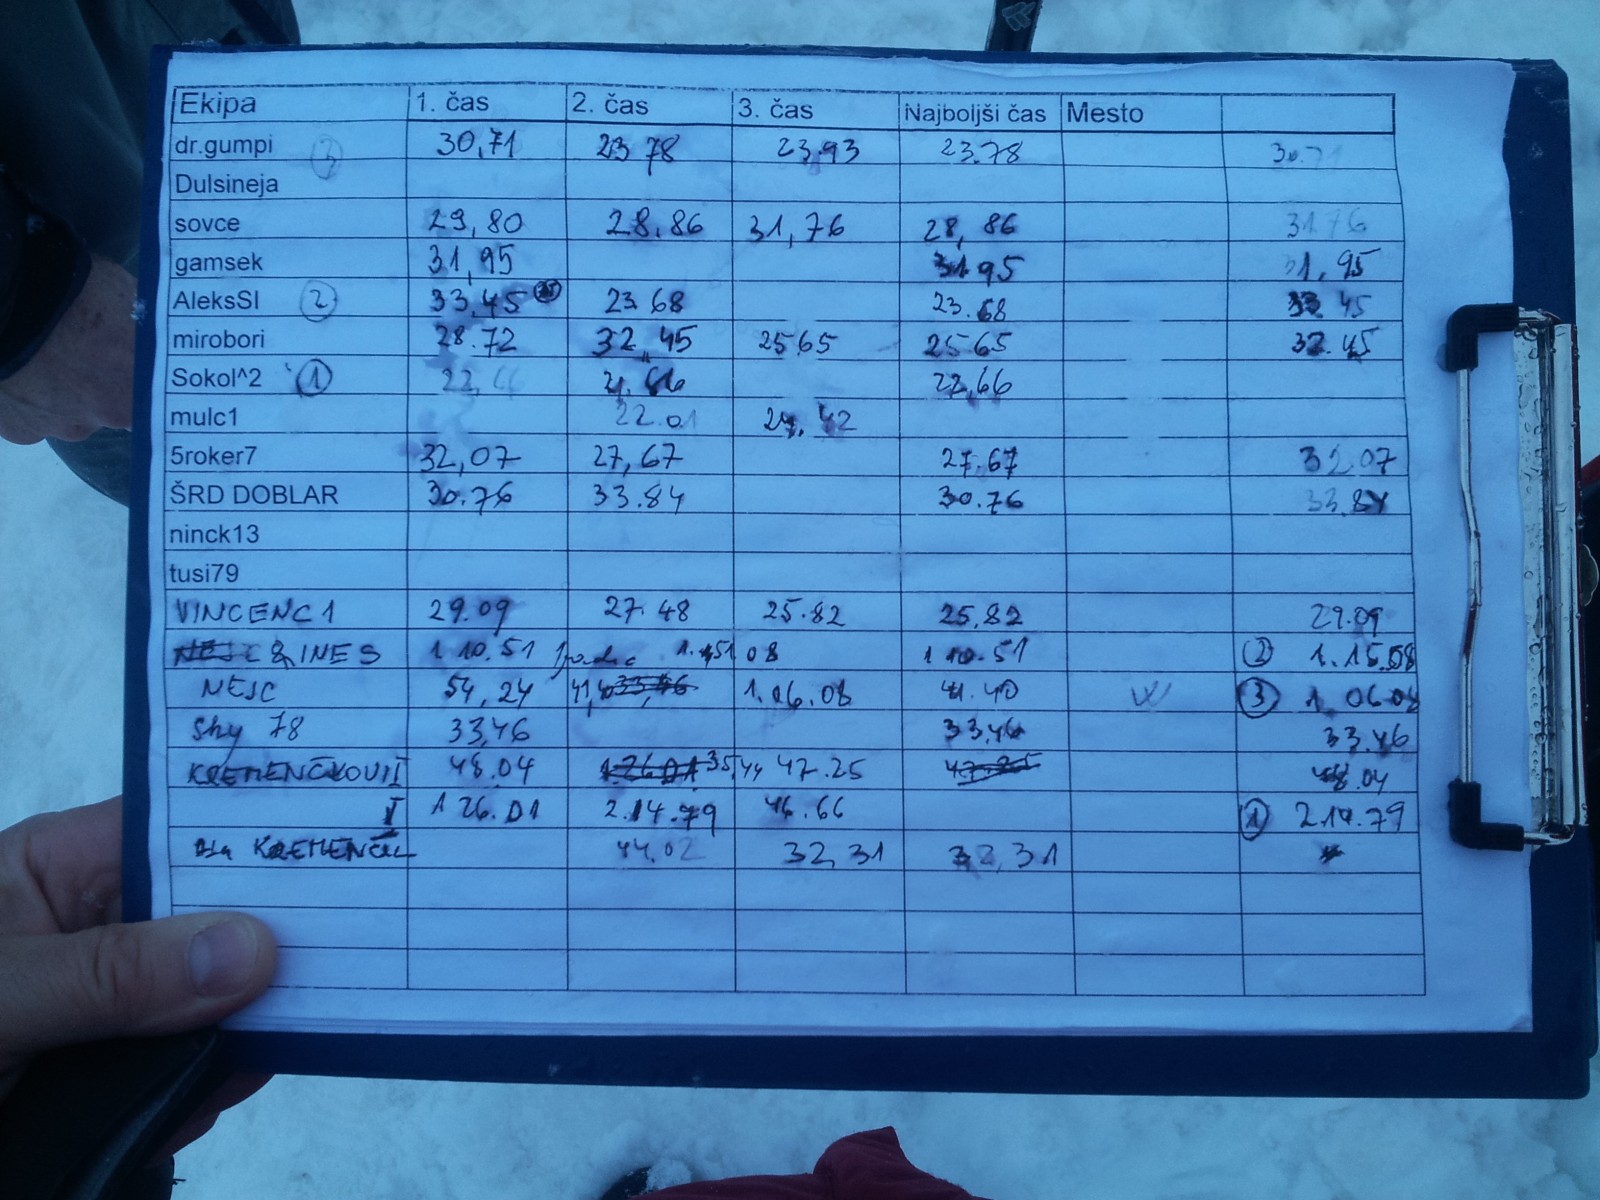 Ekipa 1. čas 2. čas 3. čas Najboljši čas Mesto
dr.gumpi 3 30,71 23 78 23.93 23.78 30.71
Dulsineja
sovce 29,80 28.86 31,76 28,86 31.76
gamsek 31,95 31 95 31,95
AleksSI 2 33,45 23 68 23.68 33 45
mirobori 28.72 32,45 25 65 25 65 32.45
Sokol^2 1 22,66 22,66
mulc1 22.01
5roker7 32,07 27,67 27.67 32.07
ŠRD DOBLAR 30.76 33.84 30.76 33.84
ninck13
tusi79
VINCENC 1 29.09 27.48 25.82 25,82 29.09
& INES 1 10.51 08 1 10.51 2 1.15.08
NEJC 54,24 41,40 1.06.08 41.40 3 1 06 08
Shy 78 33,46 33,46 33.46
KREMENČKOVI II 48.04 35,44 47.25 47.25 48.04
I 1 26.01 2.14.79 46.66 1 2.14.79
44.02 32,31 32,31